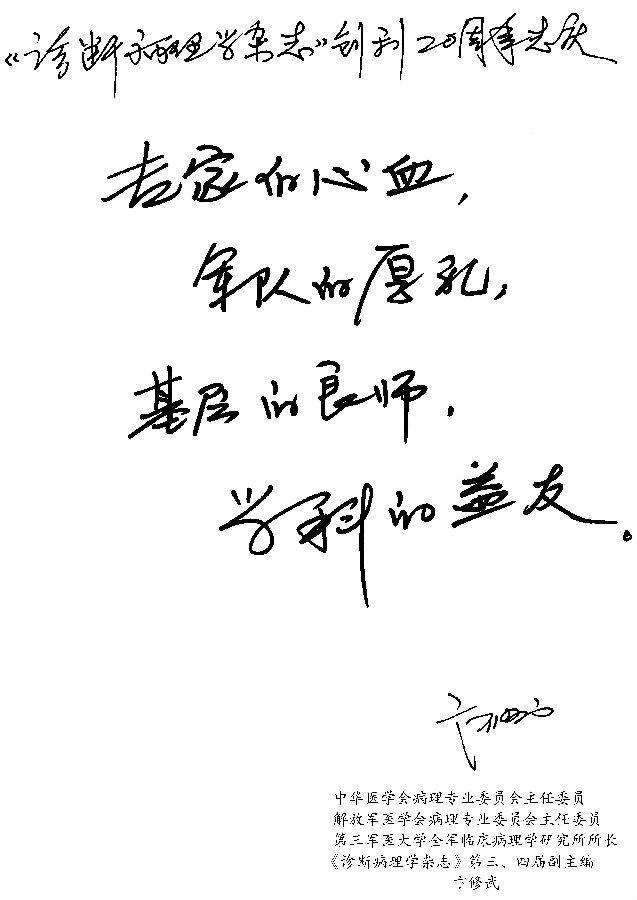 《诊断病理学杂志》创刊20周年志庆
专家的心血，
军队的厚礼，
基层的良师，
学科的益友。
卞修武
中华医学会病理专业委员会主任委员
解放军医学会病理专业委员会主任委员
第三军医大学全军临床病理学研究所所长
《诊断病理学杂志》第三、四届副主编
卞修武